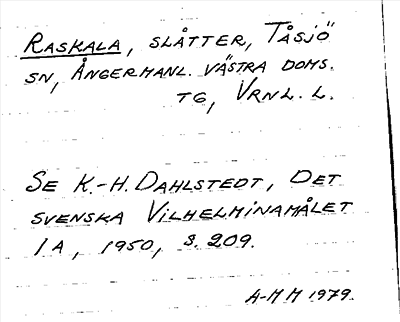 RASKALA, SLÅTTER, TÅSJÖ
SN, ÅNGERMANL. VÄSTRA DOMS.
TG, VRNL. L.
SE K.-H. DAHLSTEDT, DET
SVENSKA VILHELMINAMÅLET
1A, 1950, S. 209.
A-MM 1979.